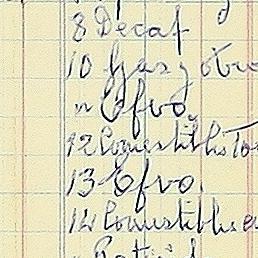 8 Decaf
10 Gas y otro
" Efvo,
12 Comestibles To
13 Efvo.
14 Comestibles e